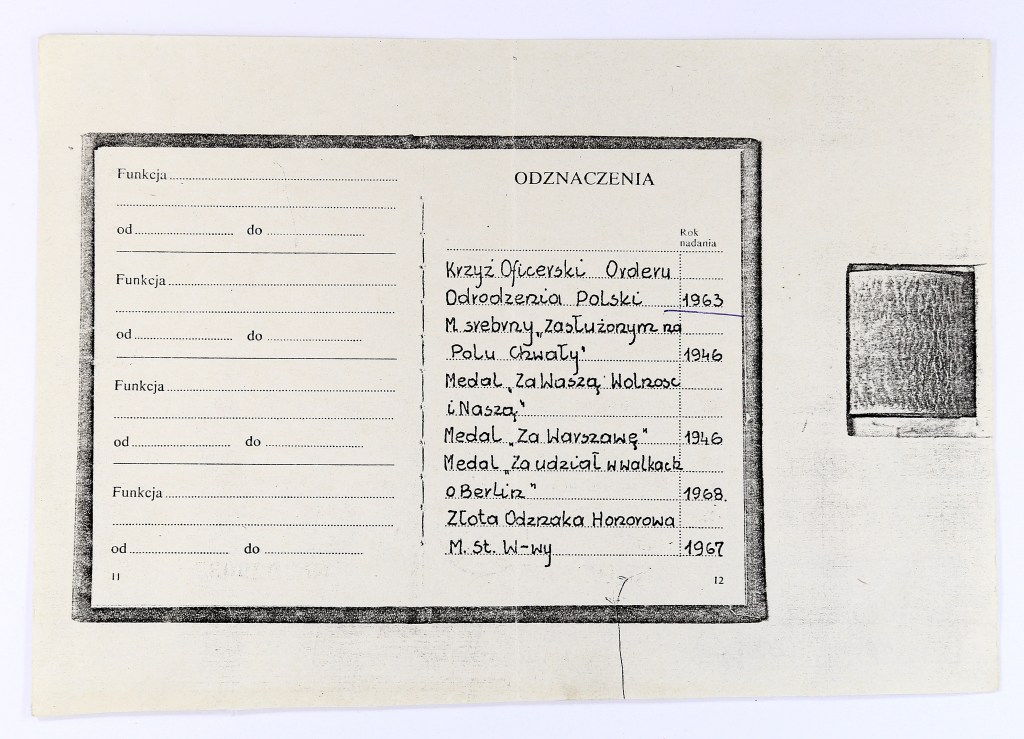 Funkcja
od do
Funkcja
od do
Funkcja
od do
Funkcja
od do
11
ODZNACZENIA
Rok
nadania
Krzyż Oficerski Orderu
Odrodzenia Polski 1963
M. srebrny „Zasłużonym na
Polu Chwały" 1946
Medal „Za Waszą Wolność
i Naszą"
Medal „Za Warszawę" 1946
Medal „Za udział w walkach
o Berlin" 1968.
Złota Odznaka Honorowa
M. St. W-wy 1967
12